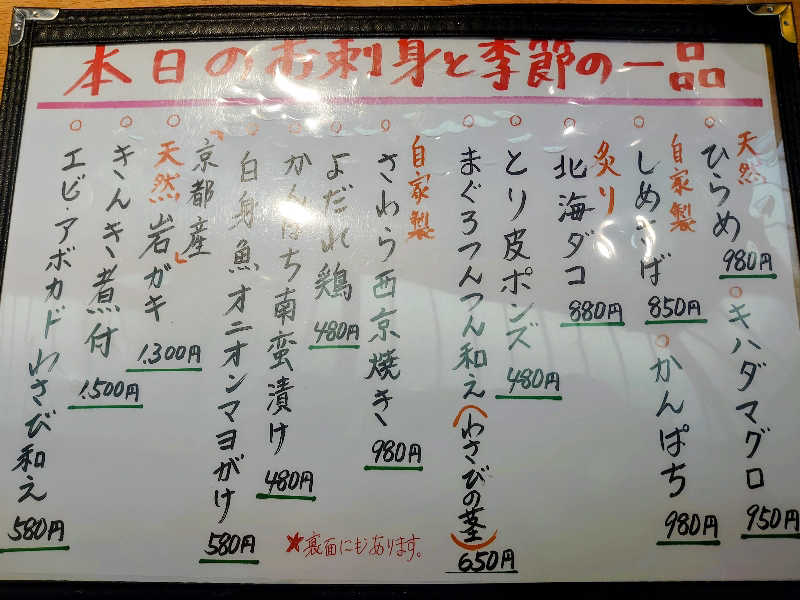 本日のお刺身と季節の一品
○天然 ひらめ 980円
○キハダマグロ 950円
○自家製 しめさば 850円
○かんぱち 980円
○炙り 北海ダコ 880円
○とり皮ポンズ 480円
○まぐろつんつん和え(わさびの茎) 650円
○自家製 さわら西京焼き 980円
○よだれ鶏 480円
○かんぱち南蛮漬け 480円
○白身魚オニオンマヨがけ 580円
○「京都産」天然岩ガキ 1.300円
○きんき煮付 1.500円
○エビアボカドわさび和え 580円
★裏面にもあります。